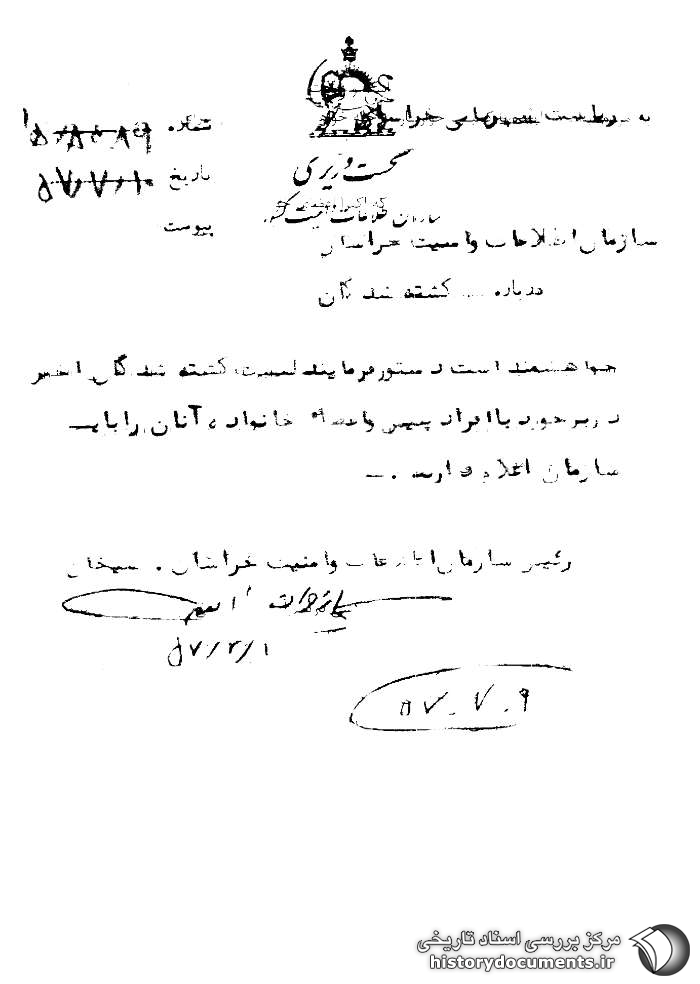 به ریاست شهربانی خراسان
شماره
نخست وزیری
تاریخ ۵۷/۷/۱۰
سازمان اطلاعات و امنیت کشور
پیوست
سازمان اطلاعات و امنیت خراسان
درباره .... کشته شدگان
خواهشمند است دستور فرمایند لیست کشته شدگان اخیر
در برخورد با افراد پلیس و خانواده آنان را باین
سازمان اعلام دارند . ـ
رئیس سازمان اطلاعات و امنیت خراسان .
۵۷ . ۷ . ۹
مرکز بررسی اسناد تاریخی
historydocuments.ir